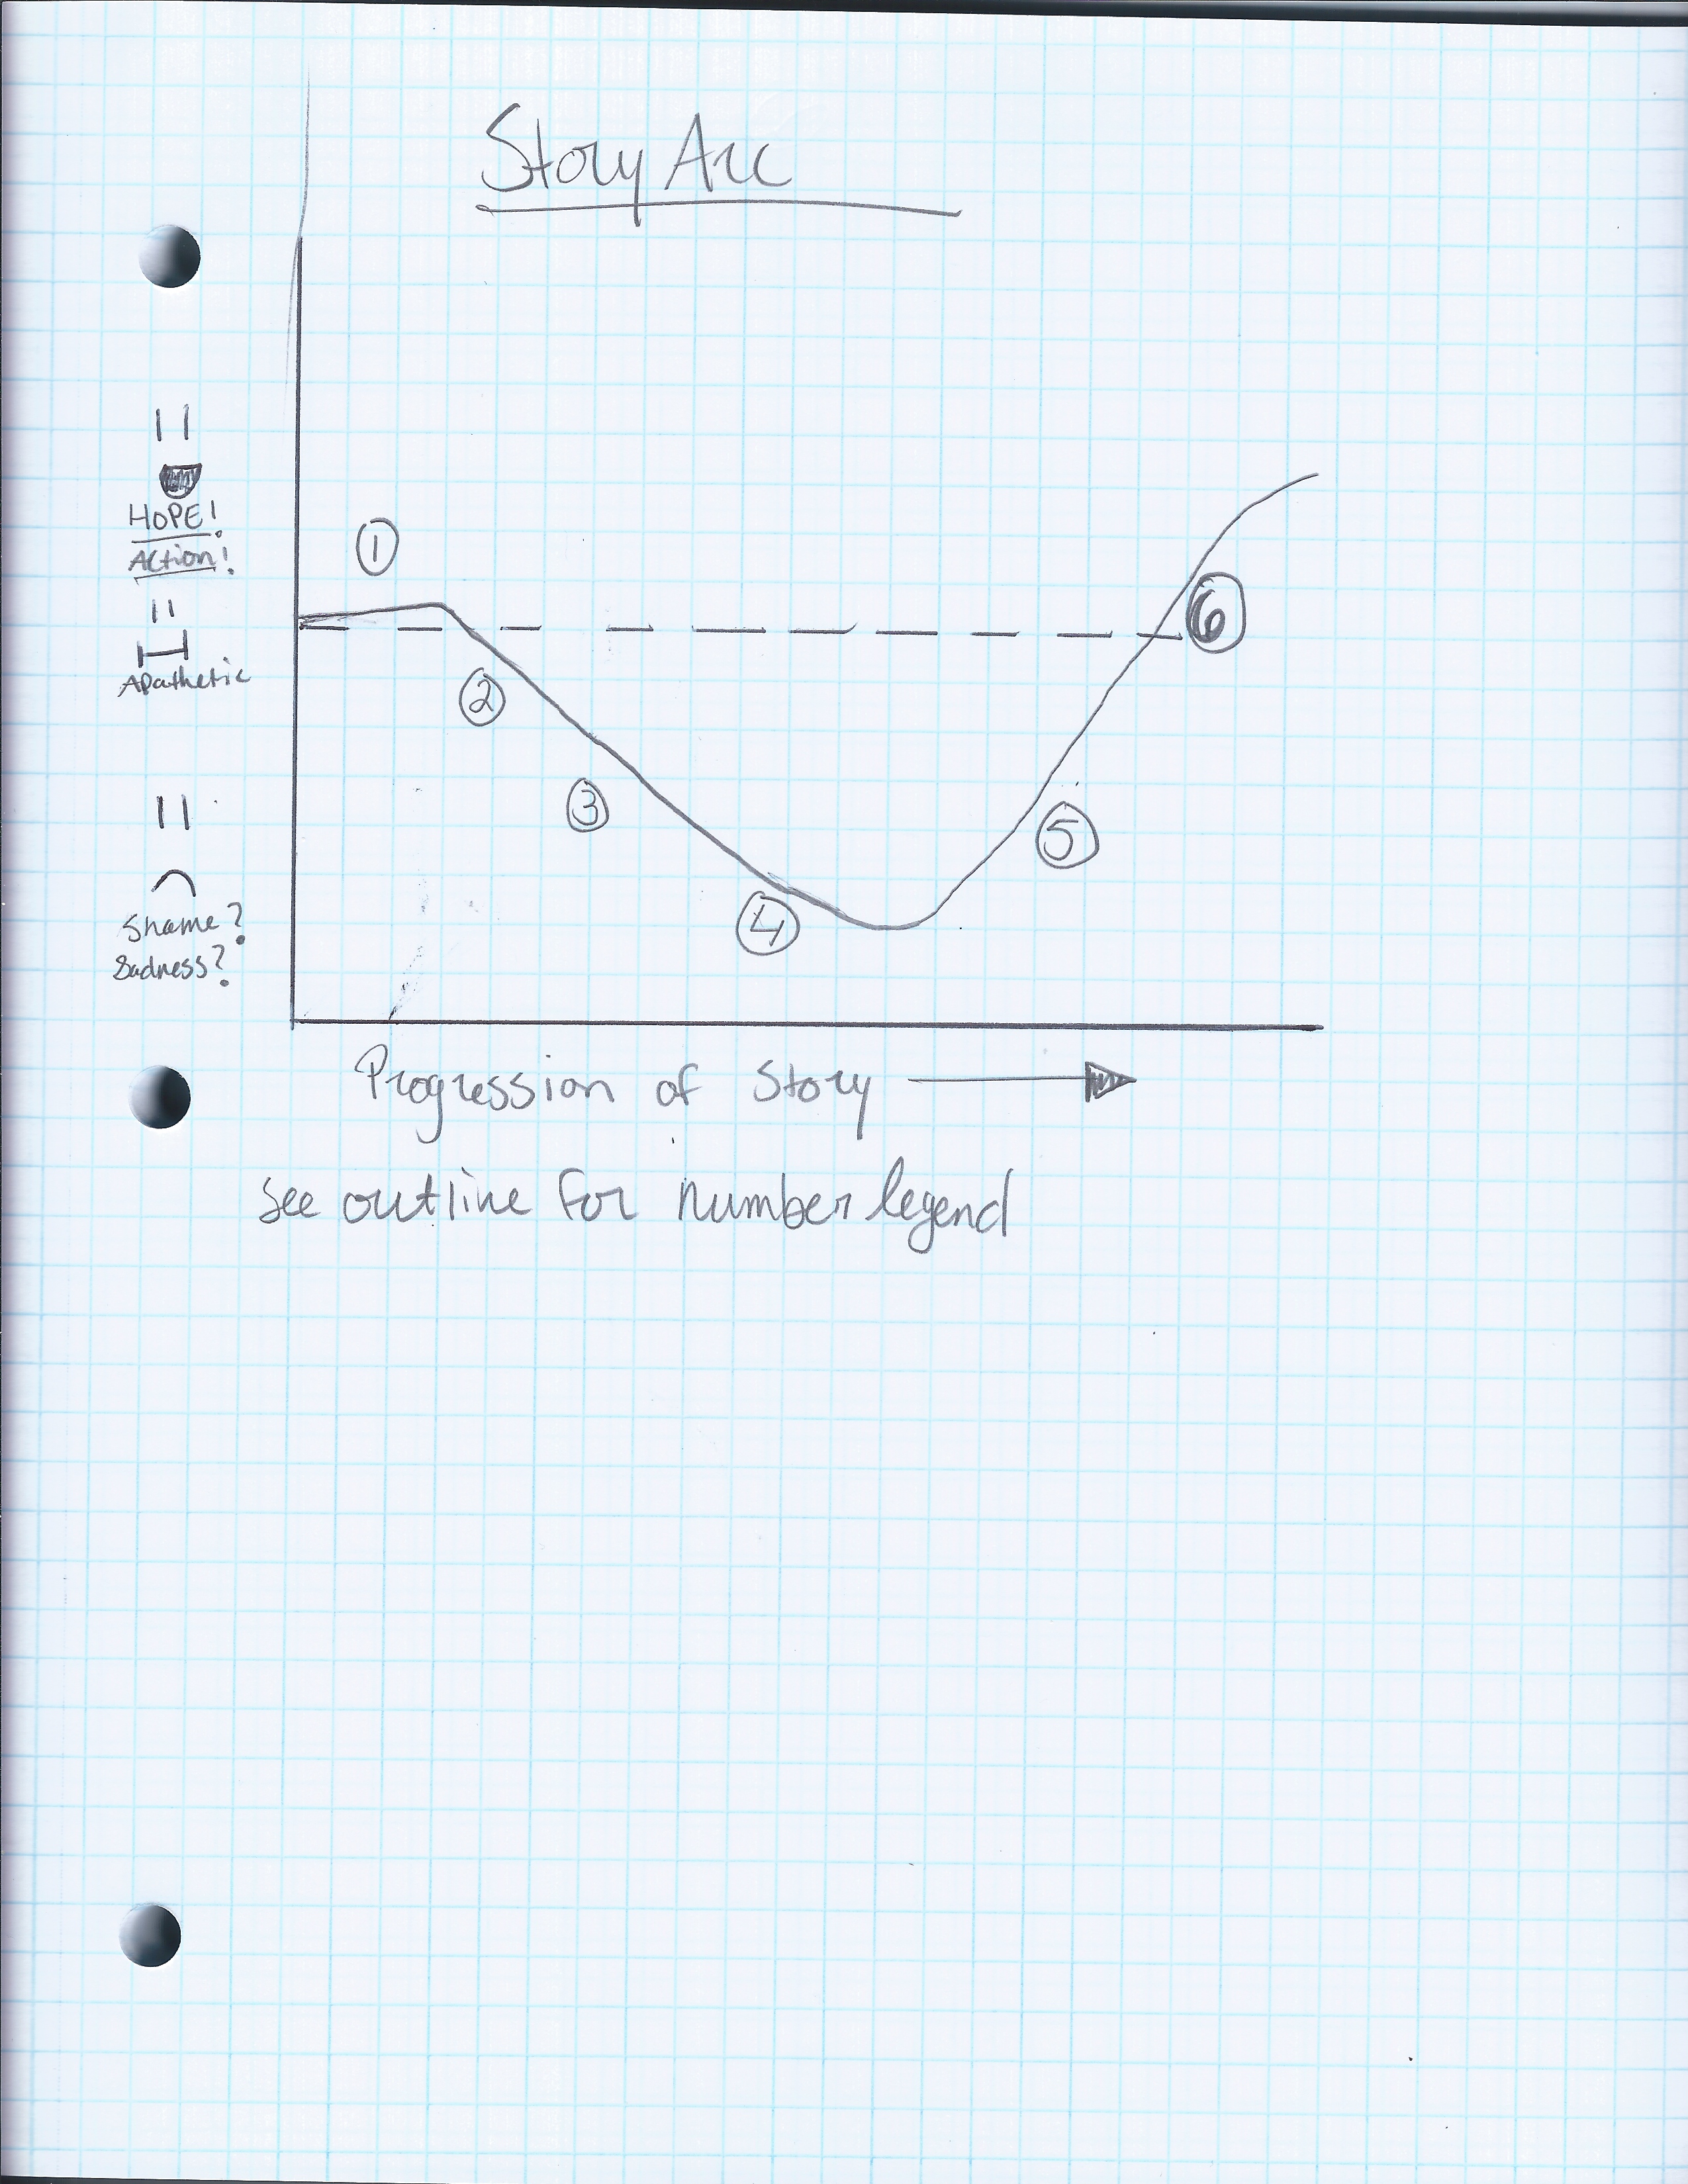 Story Arc
HOPE!
Action!
Apathetic
Shame?
Sadness?
1
2
3
4
5
6
Progression of Story
See outline for number legend